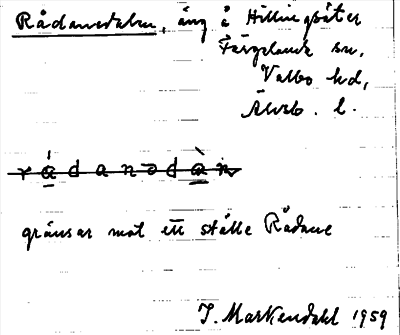 Rådanedalen, äng å Hillingsäter
Färgelanda sn,
Valbo hd,
Älvsb. l.
rådanədàn
gränsar mot ett ställe Rådane
J. Markendahl 1959